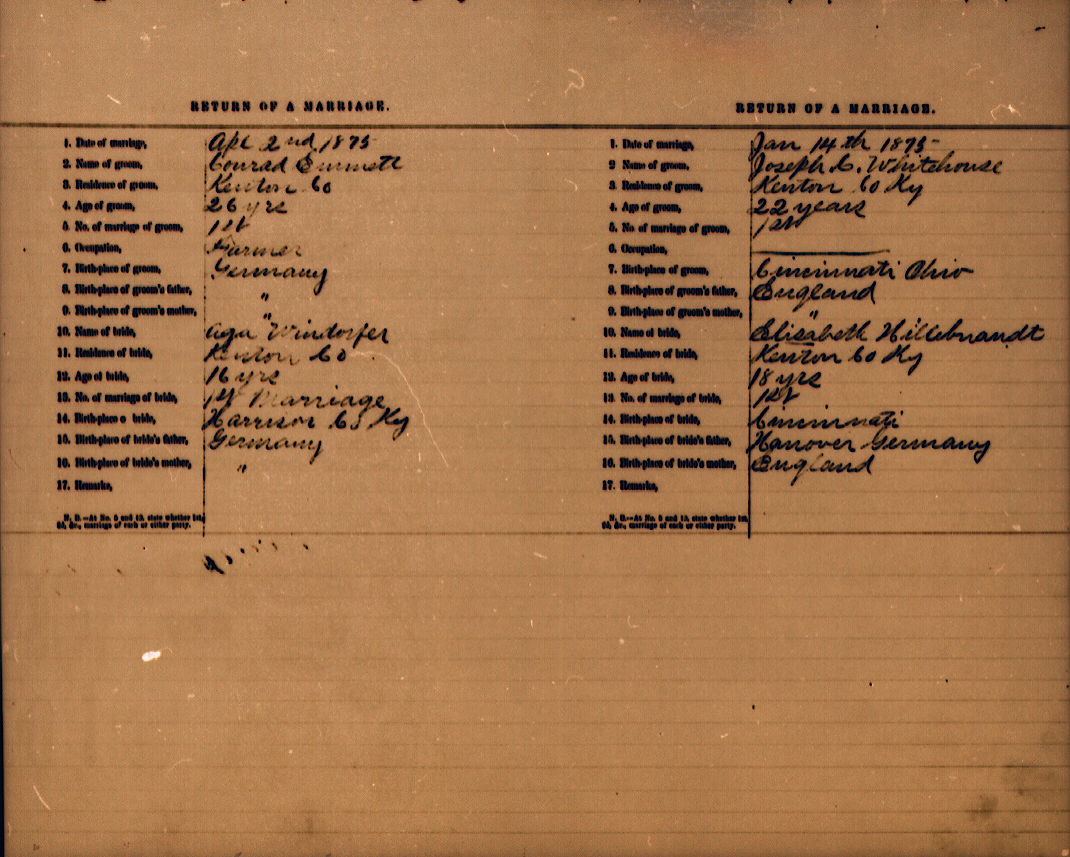 RETURN OF A MARRIAGE.
1. Date of marriage, Apl 2nd 1875
2. Name of groom, Conrad Emmett
3. Residence of groom, Kenton Co
4. Age of groom, 26 yrs
5. No. of marriage of groom, 1st
6. Occupation, Farmer
7. Birth-place of groom, Germany
8. Birth-place of groom's father, "
9. Birth-place of groom's mother, "
10. Name of bride, Windorfer
11. Residence of bride, Kenton Co
12. Age of bride, 16 yrs
13. No. of marriage of bride, 1st Marriage
14. Birth-place o bride, Harrison Co Ky
15. Birth-place of bride's father, Germany
16. Birth-place of bride's mother, "
17. Remarks,
N. B.—At No. 5 and 13, state whether 1st,
2d, &c., marriage of each or either party.
RETURN OF A MARRIAGE.
1. Date of marriage, Jan 14th 1875
2 Name of groom, Joseph C. Whitehouse
3. Residence of groom, Kenton Co Ky
4. Age of groom, 22 years
5. No. of marriage of groom, 1st
6. Occupation,
7. Birth-place of groom, Cincinnati Ohio
8. Birth-place of groom's father, England
9. Birth-place of groom's mother, "
10. Name of bride, Elisabeth Hillebrandt
11. Residence of bride, Kenton Co Ky
12. Age of bride, 18 yrs
13. No. of marriage of bride, 1st
14. Birth-place of bride, Cincinnati
15. Birth-place of bride's father, Hanover Germany
16. Birth-place of bride's mother, England
17. Remarks,
N. B.—At No. 5 and 13, state whether 1st,
2d, &c., marriage of each or either party.